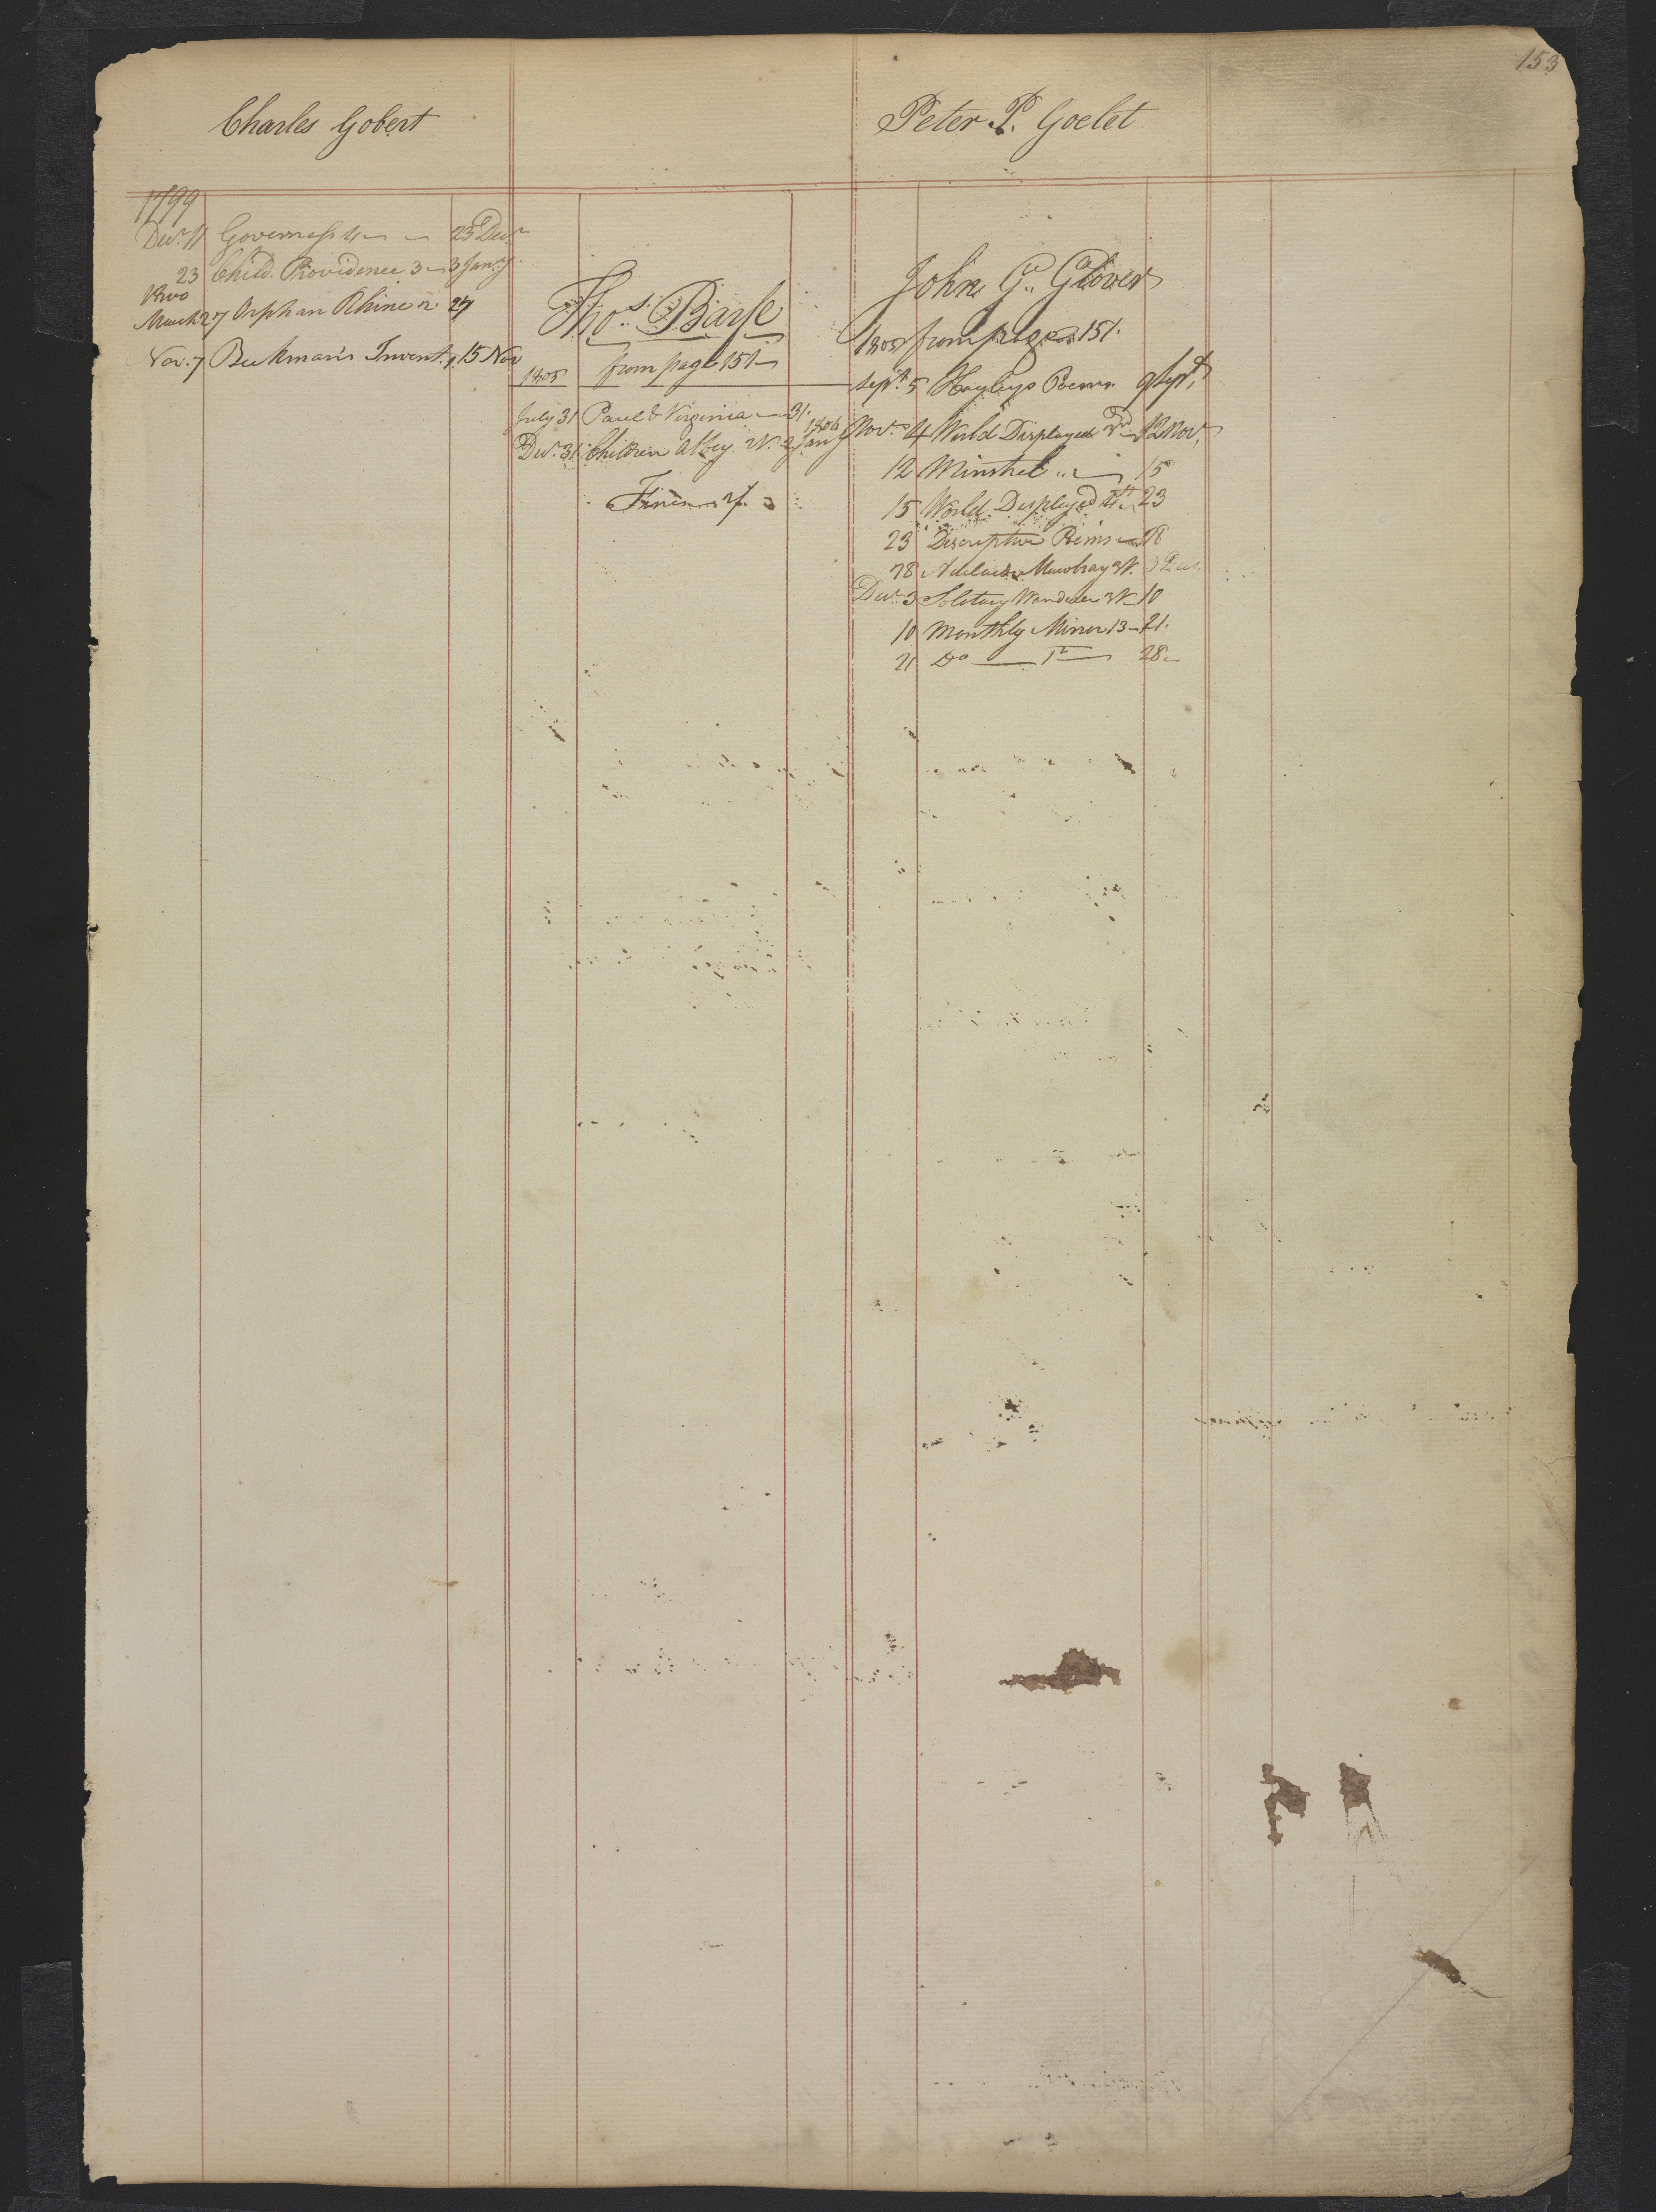 153
Charles Gobert
1799
Decr. 11 Governess 4 25 Decr
23 Child. Providence 3 3 Jany.
1800
March 27 Orphan Rhine 2. 27
Nov. 7 Beckman's Invent. 1. 15 Nov
Thos. Barse
1805 from page 151
July 31 Paul & Virginia 31.
Decr. 31 Children Abbey. 2 Jany 1806
Fines
Peter P. Goelet
John G. Glover
1805 from page 151.
Sept. 5 Hayleys Poems 9 Sept.
Nov. 4 World Displayed 3d 12 Nov.
12 Minstrel 15
15 World Displayed 4th 23
23 Descriptive Poems 28
28 Adelaide Mowbray 3 Dec.
Decr. 3 Solitary Wanderer 10
10 Monthly Mirror 13 21.
21 Do 28